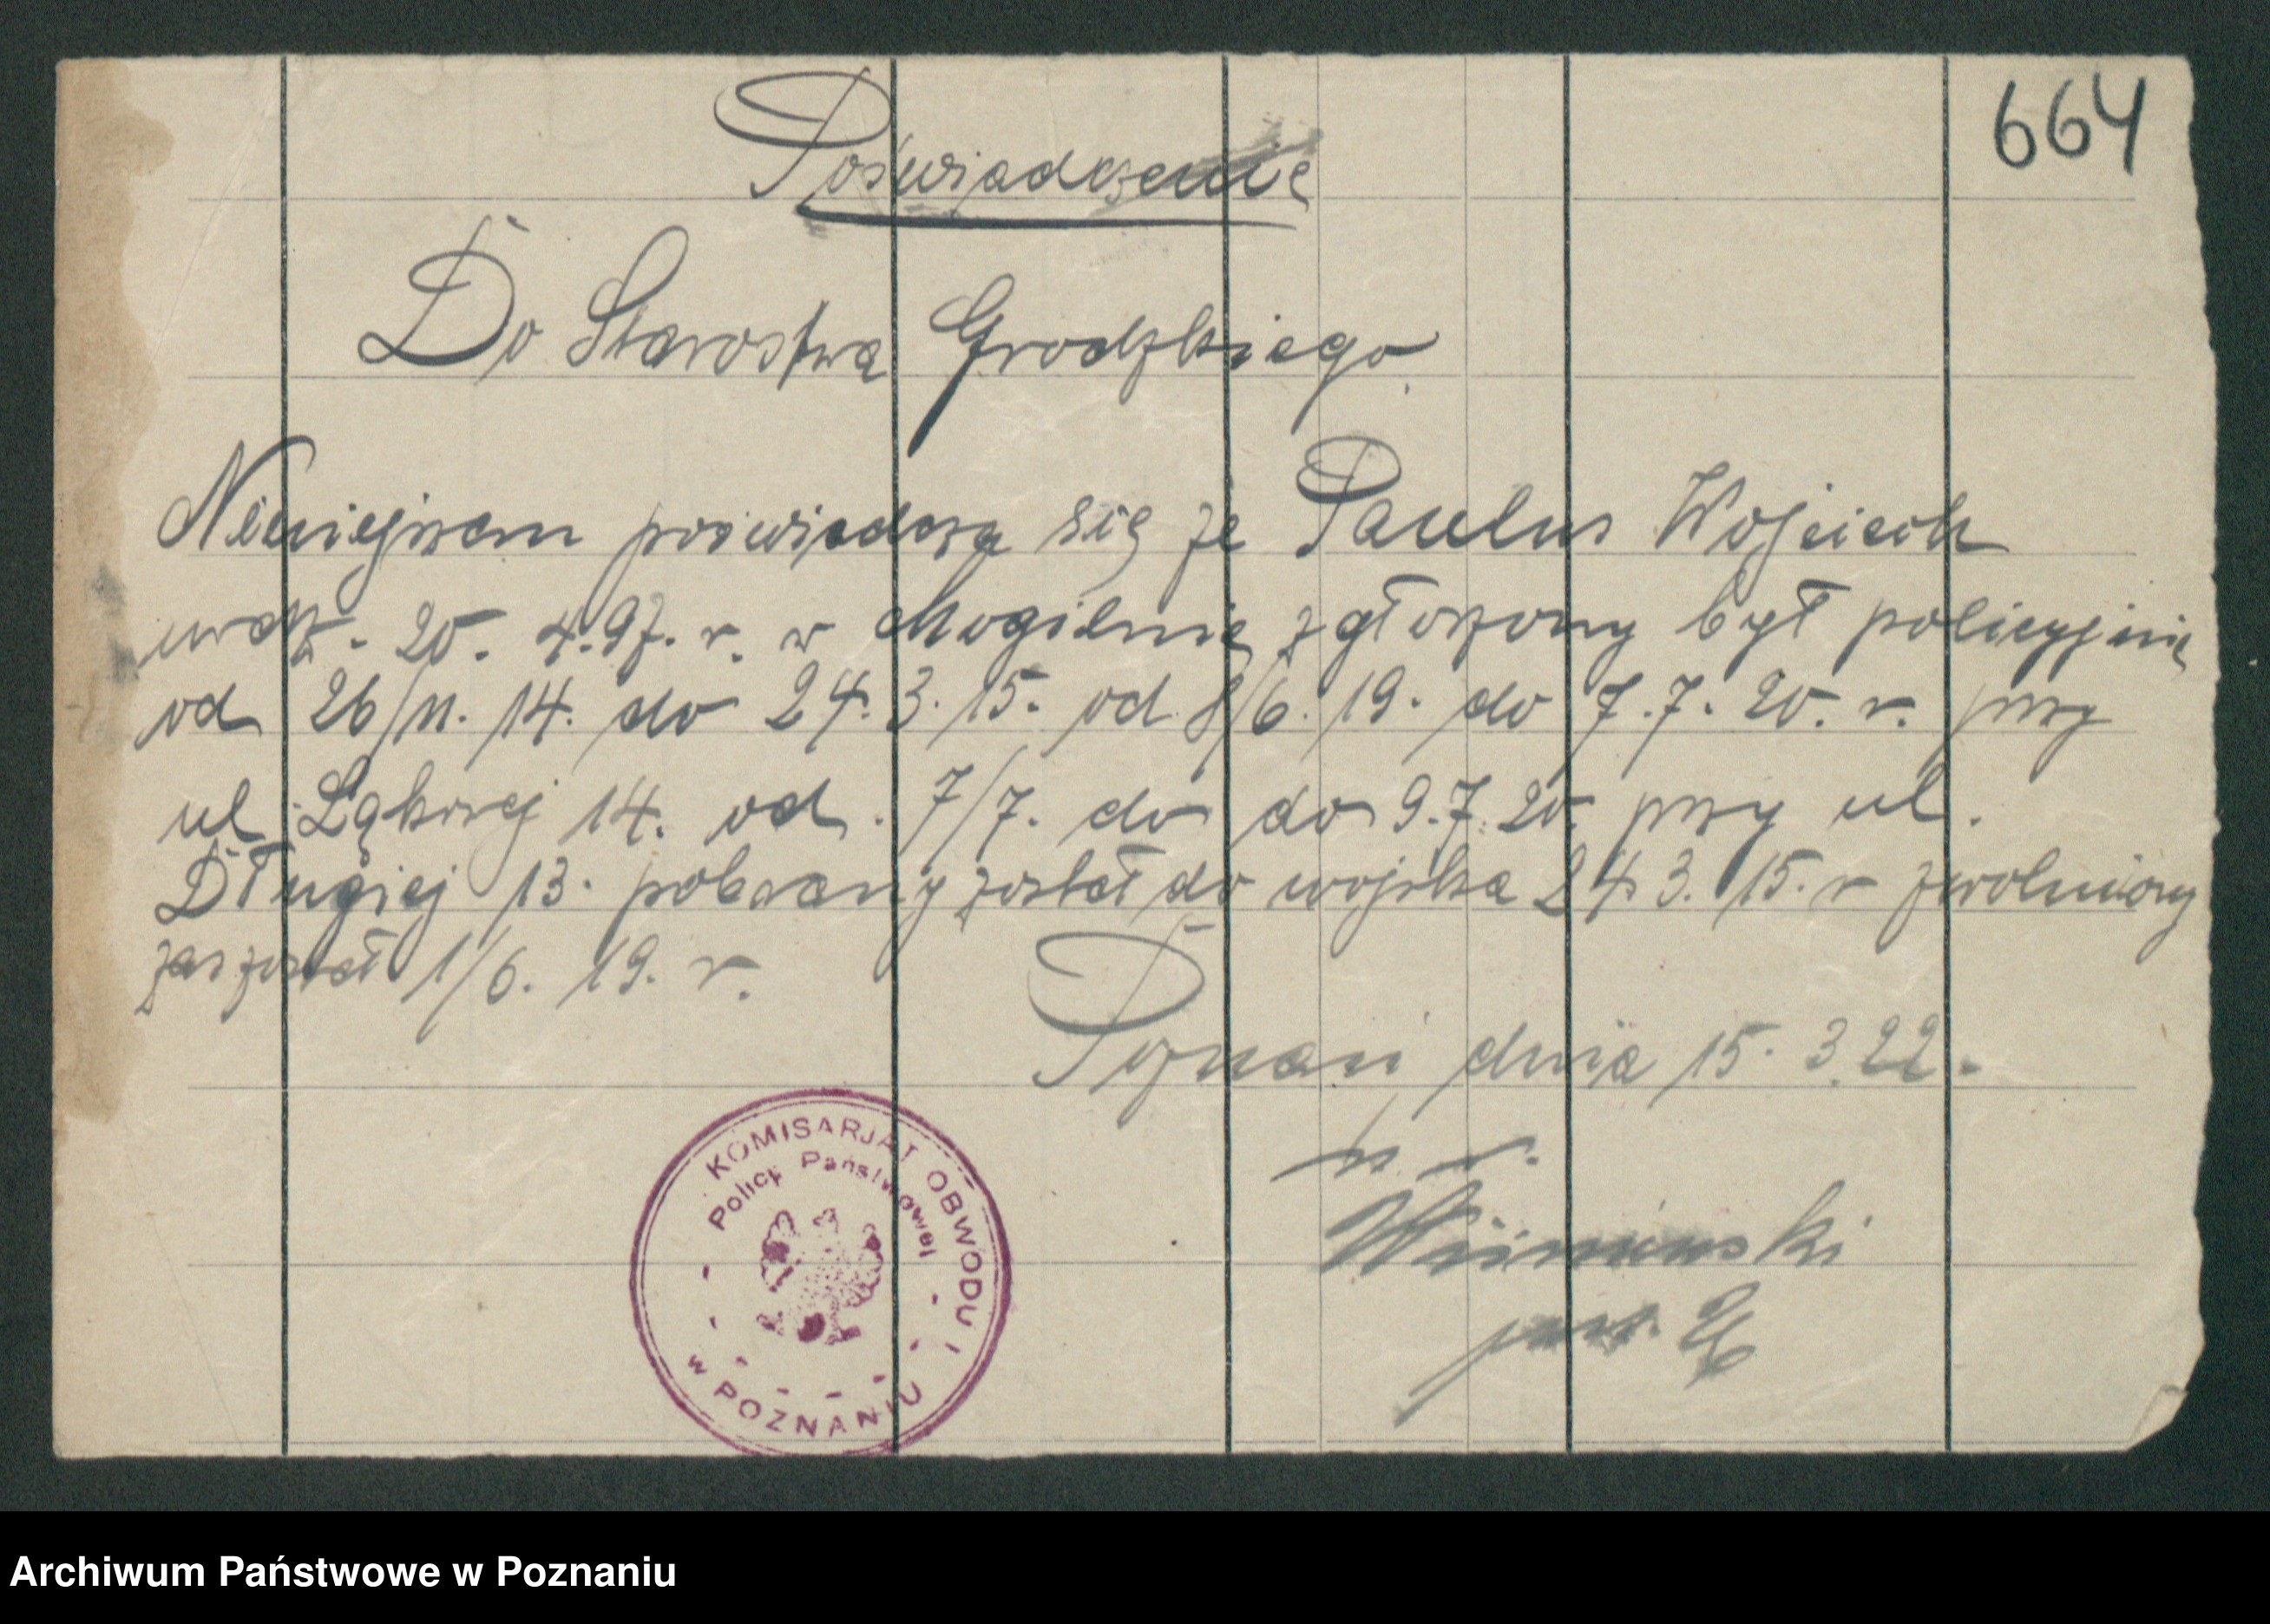 664
Poświadczenie
Do Starostwa Grodzkiego
Niniejszem poświadcza się że Paulus Wojciech
urdz. 20. 4. 97. r. w Mogilnie zgłoszony był policyjnie
od 26/11. 14. do 24. 3. 15. od 8/6. 19. do 7. 7. 20. r. przy
ul. Łąkowej 14. od. 7/7. do do 9. 7. 20. przy ul.
Długiej 13. pobrany został do wojska 24 3. 15. r zwolniony
zas został 1/6. 19. r.
Poznań dnia 15. 3. 22.
Wiśniewski
KOMISARJAT OBWODU I
Policji Państwowej
w POZNANIU
Archiwum Państwowe w Poznaniu